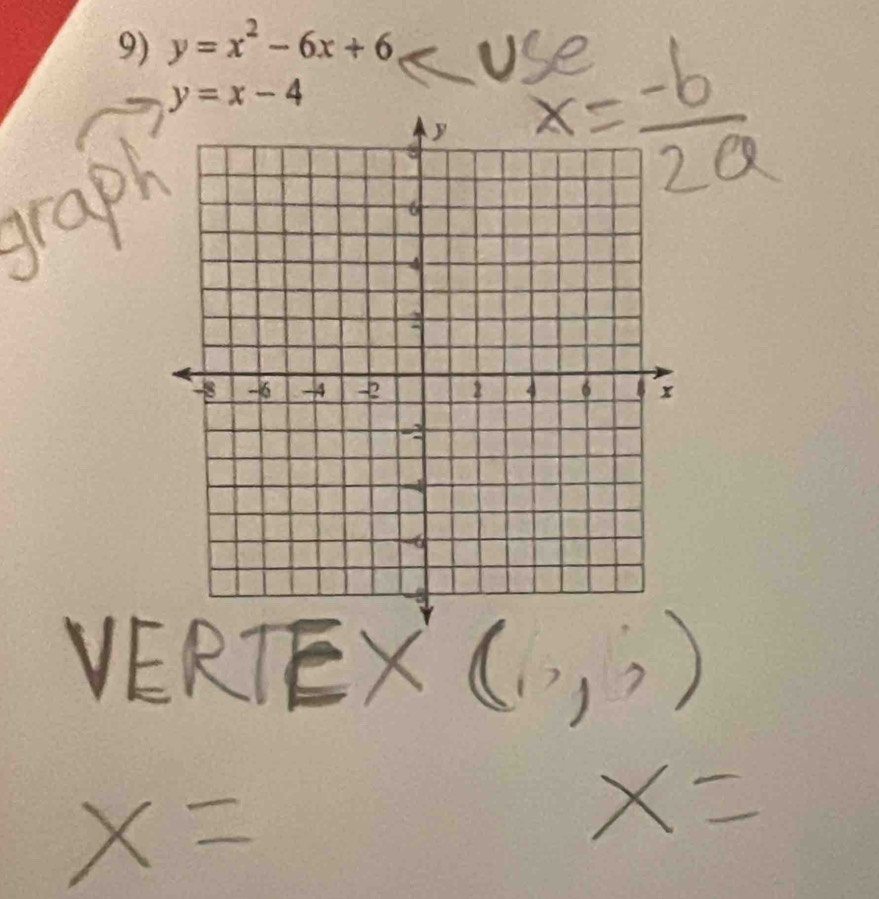 9) y = x² - 6x + 6 ← use
y = x - 4
x = -b/2a
graph
y
8
6
4
2
-8 -6 -4 -2 2 4 6 8 x
-2
-4
-6
-8
VERTEX ( , )
x = x =